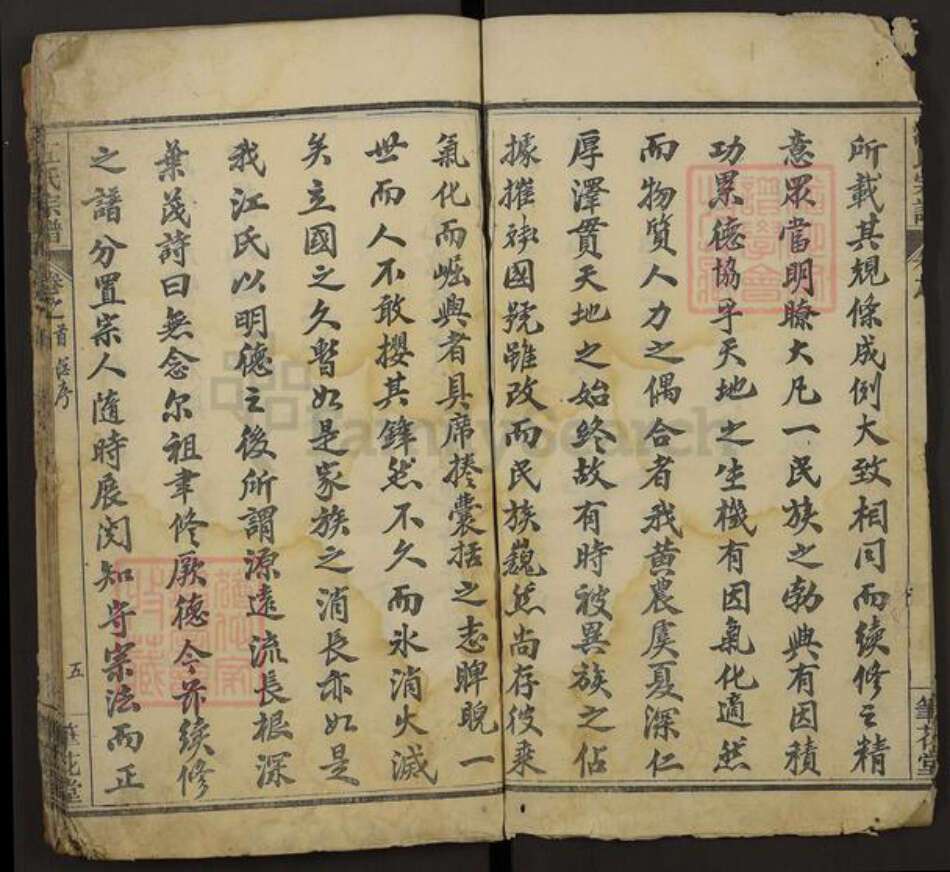 所載其規條成例大致相同而續修之精
意眾當明瞭大凡一民族之勃興有因積
功累德協乎天地之生機有因氣化適然
而物質人力之偶合者我黃農虞夏深仁
厚澤貫天地之始終故有時被異族之佔
據摧殘國號雖改而民族巍然尚存彼乘
氣化而崛興者具席捲囊括之志睥睨一
世而人不敢攖其鋒然不久而氷消火滅
矣立國之久暫如是家族之消長亦如是
我江氏以明德之後所謂源遠流長根深
葉茂詩曰無念尔祖聿修厥德今茲續修
之譜分置宗人隨時展閱知守宗法而正
江氏宗譜
卷之首
序
五
筆花堂
筆花堂
FamilySearch